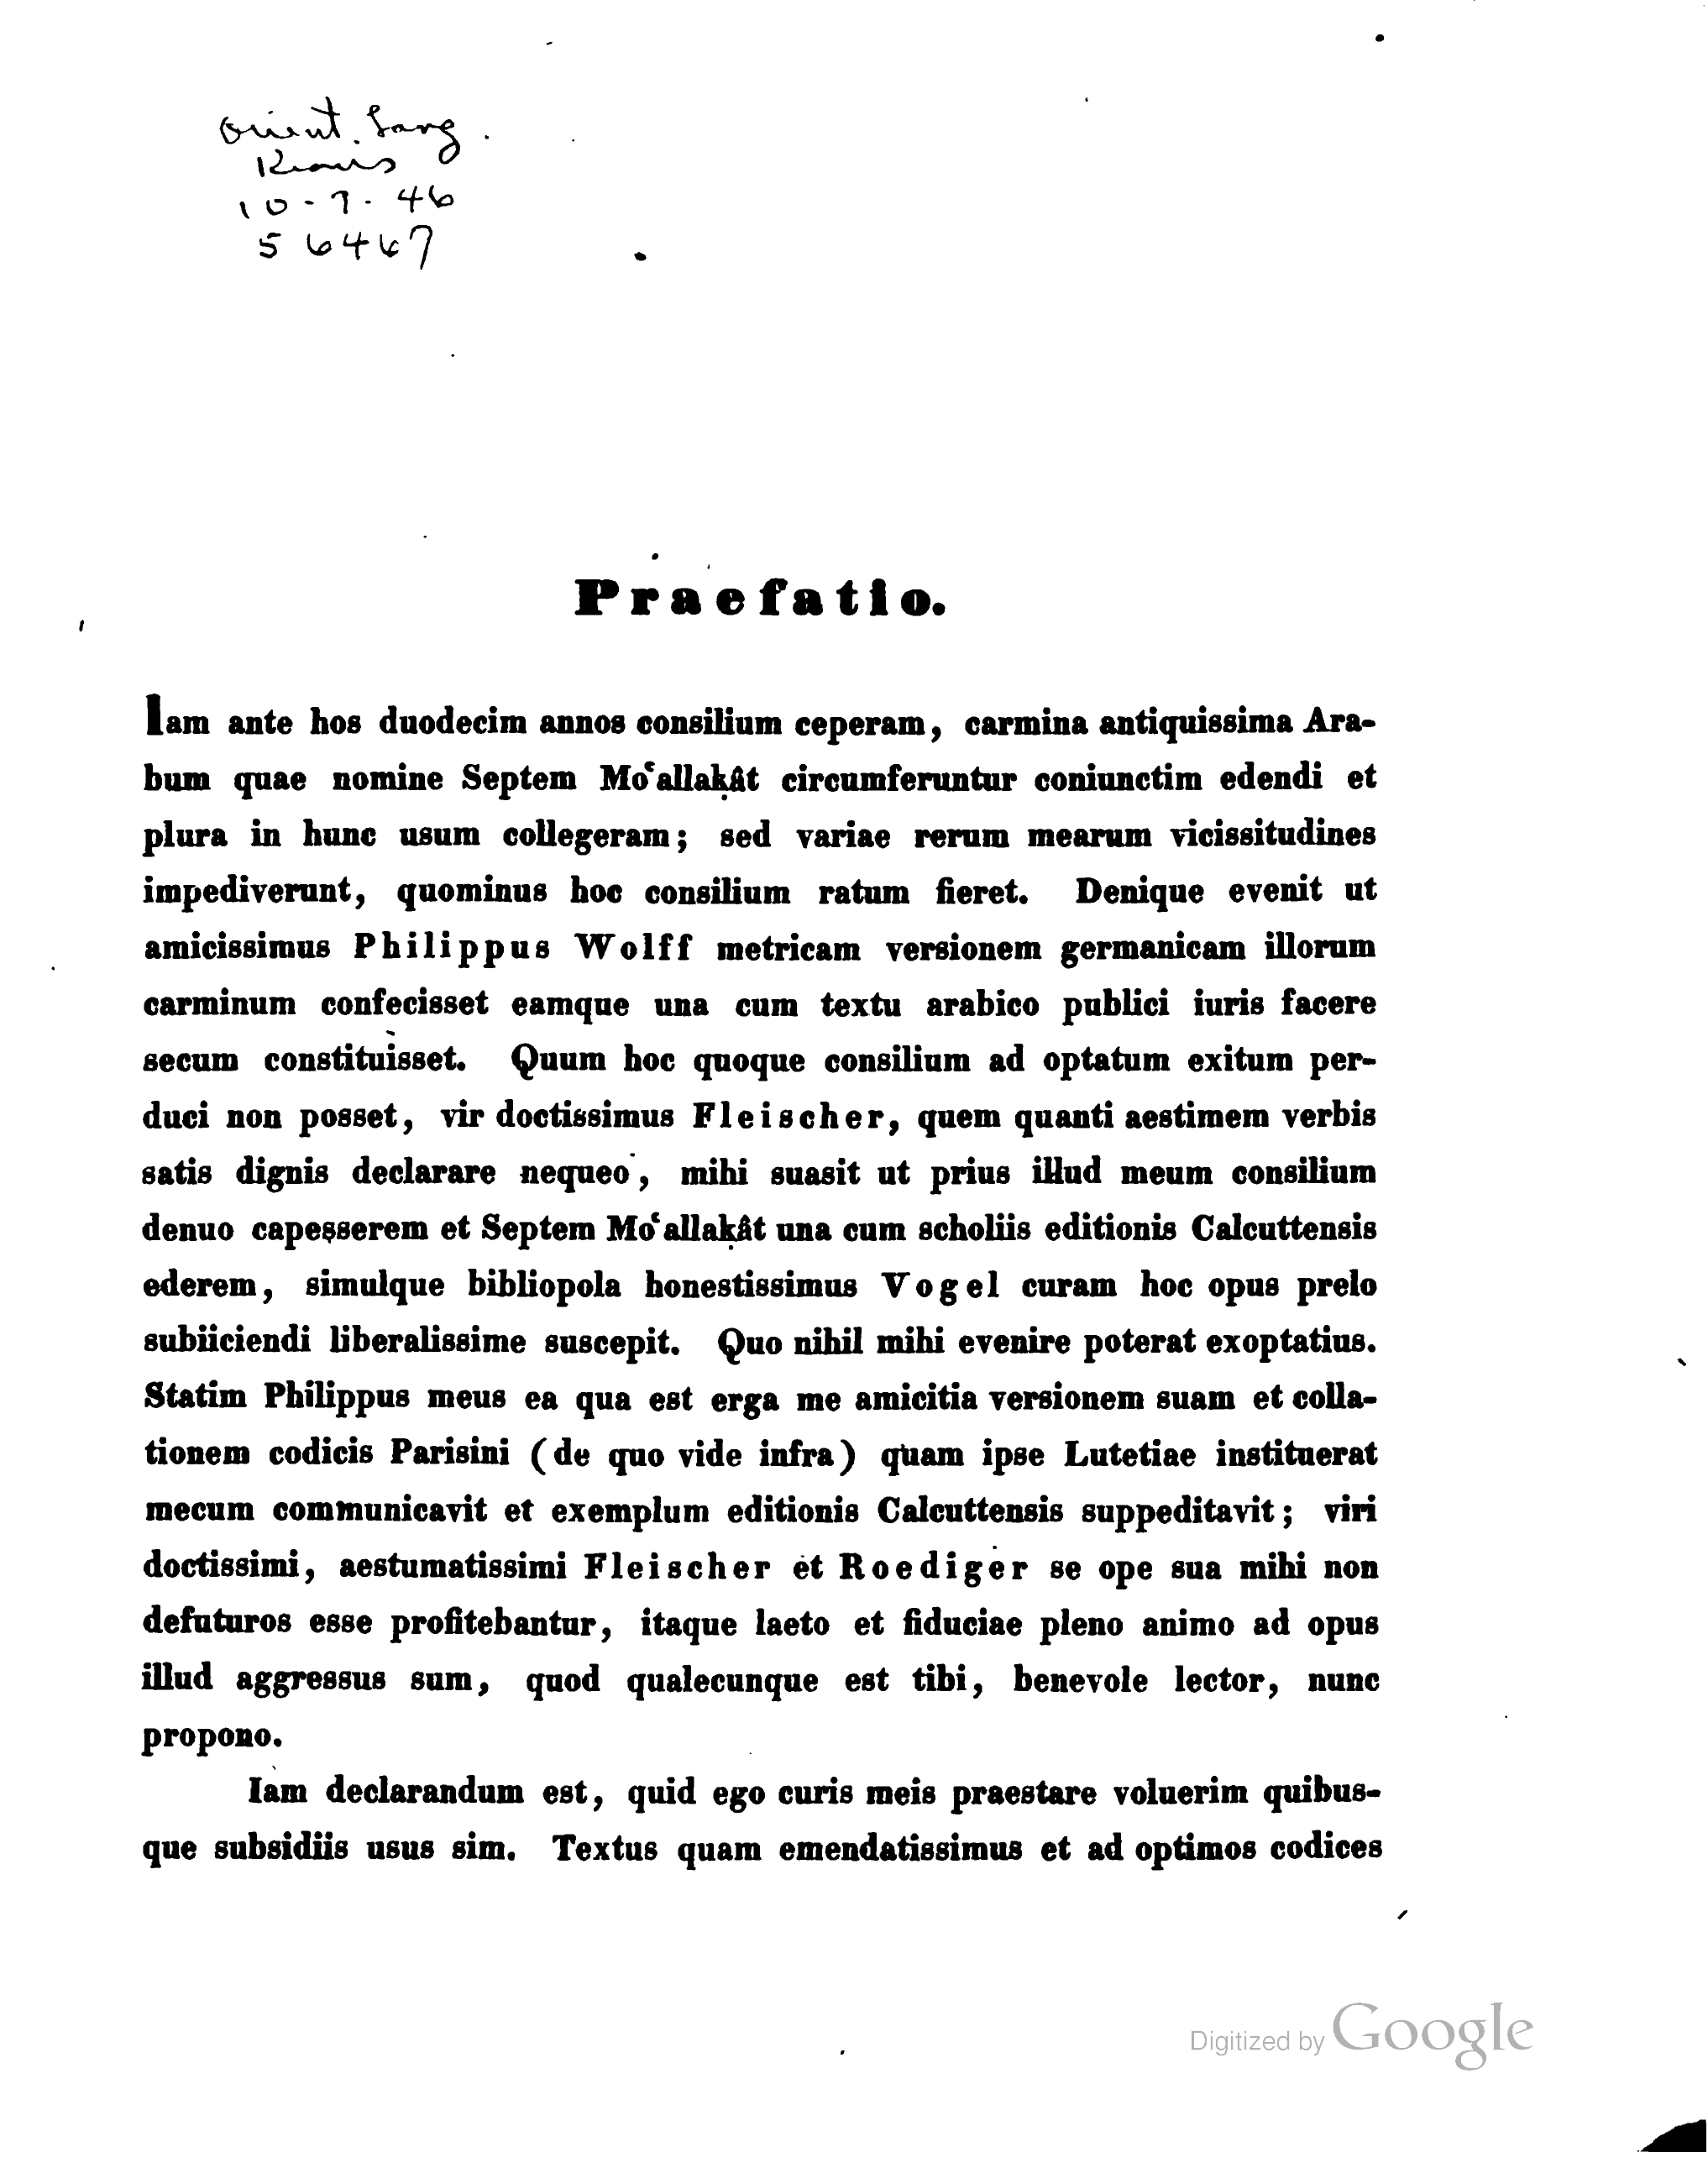 Orient. Lang.
10-7-46
56467
Praefatio.
Iam ante hos duodecim annos consilium ceperam, carmina antiquissima Ara-
bum quae nomine Septem Moʿallaḳât circumferuntur coniunctim edendi et
plura in hunc usum collegeram; sed variae rerum mearum vicissitudines
impediverunt, quominus hoc consilium ratum fieret. Denique evenit ut
amicissimus Philippus Wolff metricam versionem germanicam illorum
carminum confecisset eamque una cum textu arabico publici iuris facere
secum constituisset. Quum hoc quoque consilium ad optatum exitum per-
duci non posset, vir doctissimus Fleischer, quem quanti aestimem verbis
satis dignis declarare nequeo, mihi suasit ut prius illud meum consilium
denuo capesserem et Septem Moʿallaḳât una cum scholiis editionis Calcuttensis
ederem, simulque bibliopola honestissimus Vogel curam hoc opus prelo
subiiciendi liberalissime suscepit. Quo nihil mihi evenire poterat exoptatius.
Statim Philippus meus ea qua est erga me amicitia versionem suam et colla-
tionem codicis Parisini (de quo vide infra) quam ipse Lutetiae instituerat
mecum communicavit et exemplum editionis Calcuttensis suppeditavit; viri
doctissimi, aestumatissimi Fleischer et Roediger se ope sua mihi non
defuturos esse profitebantur, itaque laeto et fiduciae pleno animo ad opus
illud aggressus sum, quod qualecunque est tibi, benevole lector, nunc
propono.
Iam declarandum est, quid ego curis meis praestare voluerim quibus-
que subsidiis usus sim. Textus quam emendatissimus et ad optimos codices
Digitized by Google